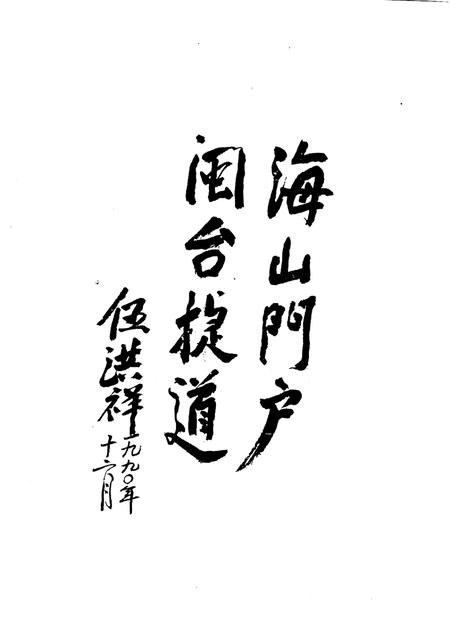 海山門户
闽台捷道
伍洪祥
一九九〇年
十二月